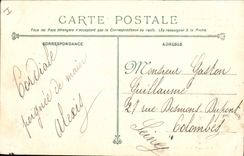 CARTE POSTALE
Tous les Pays étrangers n'acceptent pas la Correspondance au recto. (Se renseigner à la Poste).
CORRESPONDANCE
ADRESSE
Cordiale
poignée de main
Alexis
Monsieur Gaston
Guillaume
27 rue Desmons Dupont
Colombes
Seine